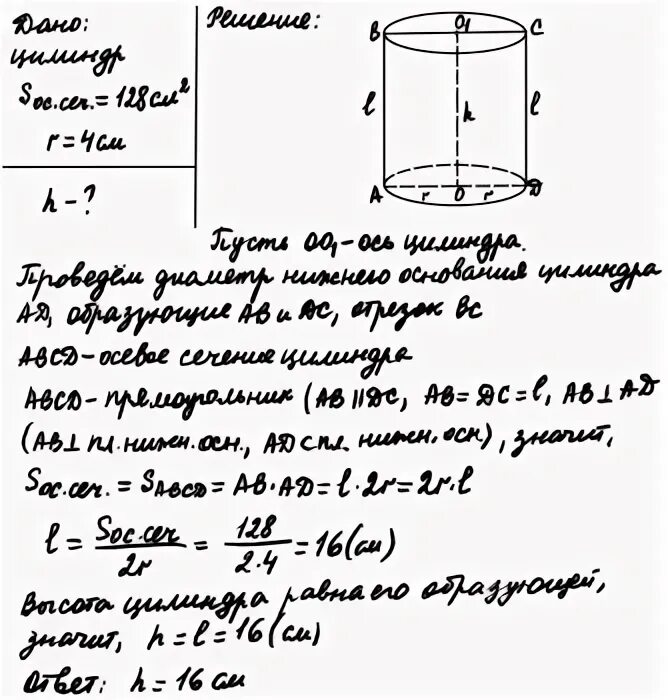 Дано:
цилиндр
Sос.сеч. = 128 см²
r = 4 см
h - ?
Решение:
B O₁ C
l h l
A r O r D
Пусть OO₁ - ось цилиндра.
Проведём диаметр нижнего основания цилиндра
AD, образующие AB и DC, отрезок BC
ABCD - осевое сечение цилиндра
ABCD - прямоугольник (AB || DC, AB = DC = l, AB ⊥ AD
(AB ⊥ пл. нижн. осн., AD ⊂ пл. нижн. осн), значит,
Sос.сеч. = SABCD = AB · AD = l · 2r = 2r · l
l = Sос.сеч / 2r = 128 / 2·4 = 16 (см)
Высота цилиндра равна его образующей,
значит, h = l = 16 (см)
Ответ: h = 16 см